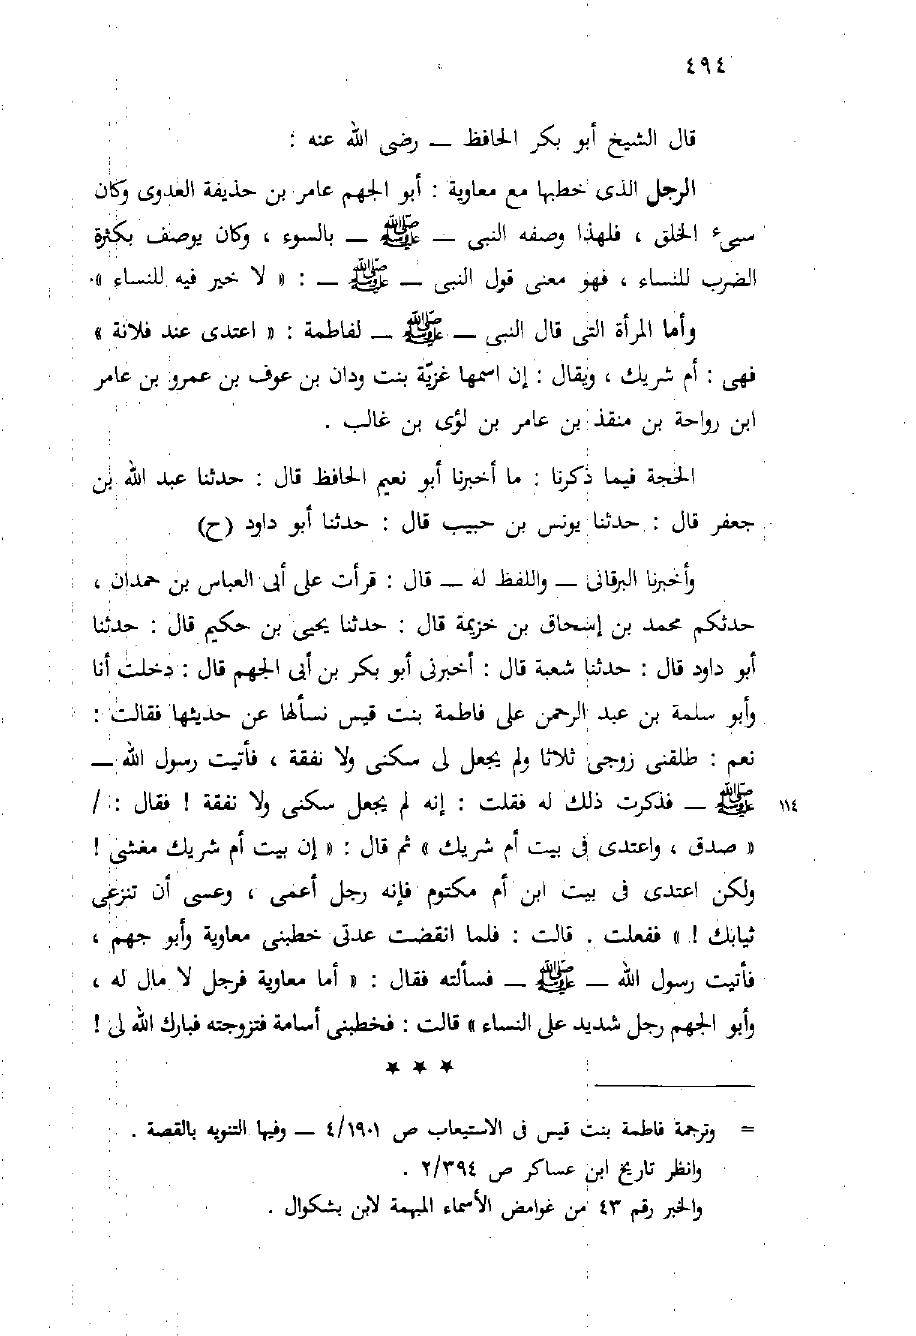 ٤٩٤
قال الشيخ أبو بكر الحافظ ــ رضى الله عنه :
الرجل الذى خطبها مع معاوية : أبو الجهم عامر بن حذيفة العدوى وكان
سيىء الخلق ، فلهذا وصفه النبى ــ ﷺ ــ بالسوء ، وكان يوصف بكثرة
الضرب للنساء ، فهو معنى قول النبى ــ ﷺ ــ : « لا خير فيه للنساء » .
وأما المرأة التى قال النبى ــ ﷺ ــ لفاطمة : « اعتدى عند فلانة »
فهى : أم شريك ، ويقال : إن اسمها غزيّة بنت ودان بن عوف بن عمرو بن عامر
ابن رواحة بن منقذ بن عامر بن لؤى بن غالب .
الحجة فيما ذكرنا : ما أخبرنا أبو نعيم الحافظ قال : حدثنا عبد الله بن
جعفر قال : حدثنا يونس بن حبيب قال : حدثنا أبو داود (ح)
وأخبرنا البرقانى ــ واللفظ له ــ قال : قرأت على أبى العباس بن حمدان ،
حدثكم محمد بن إسحاق بن خزيمة قال : حدثنا يحيى بن حكيم قال : حدثنا
أبو داود قال : حدثنا شعبة قال : أخبرنى أبو بكر بن أبى الجهم قال : دخلت أنا
وأبو سلمة بن عبد الرحمن على فاطمة بنت قيس نسألها عن حديثها فقالت :
نعم : طلقنى زوجى ثلاثا ولم يجعل لى سكنى ولا نفقة ، فأتيت رسول الله ــ
ﷺ ــ فذكرت ذلك له فقلت : إنه لم يجعل سكنى ولا نفقة ! فقال : / ١١٤
« صدق ، واعتدى فى بيت أم شريك » ثم قال : « إن بيت أم شريك مغشى !
ولكن اعتدى فى بيت ابن أم مكتوم فإنه رجل أعمى ، وعسى أن تنزعى
ثيابك ! » ففعلت . قالت : فلما انقضت عدتى خطبنى معاوية وأبو جهم ،
فأتيت رسول الله ــ ﷺ ــ فسألته فقال : « أما معاوية فرجل لا مال له ،
وأبو الجهم رجل شديد على النساء » قالت : فخطبنى أسامة فتزوجته فبارك الله لى !
★ ★ ★
= وترجمة فاطمة بنت قيس فى الاستيعاب ص ٤/١٩٠١ ــ وفيها التنويه بالقصة .
وانظر تاريخ ابن عساكر ص ٢/٣٩٤ .
والخبر رقم ٤٣ من غوامض الأسماء المبهمة لابن بشكوال .